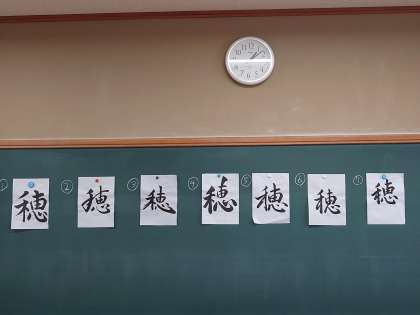 ① 穂 ② 穂 ③ 穂 ④ 穂 ⑤ 穂 ⑥ 穂 ⑦ 穂